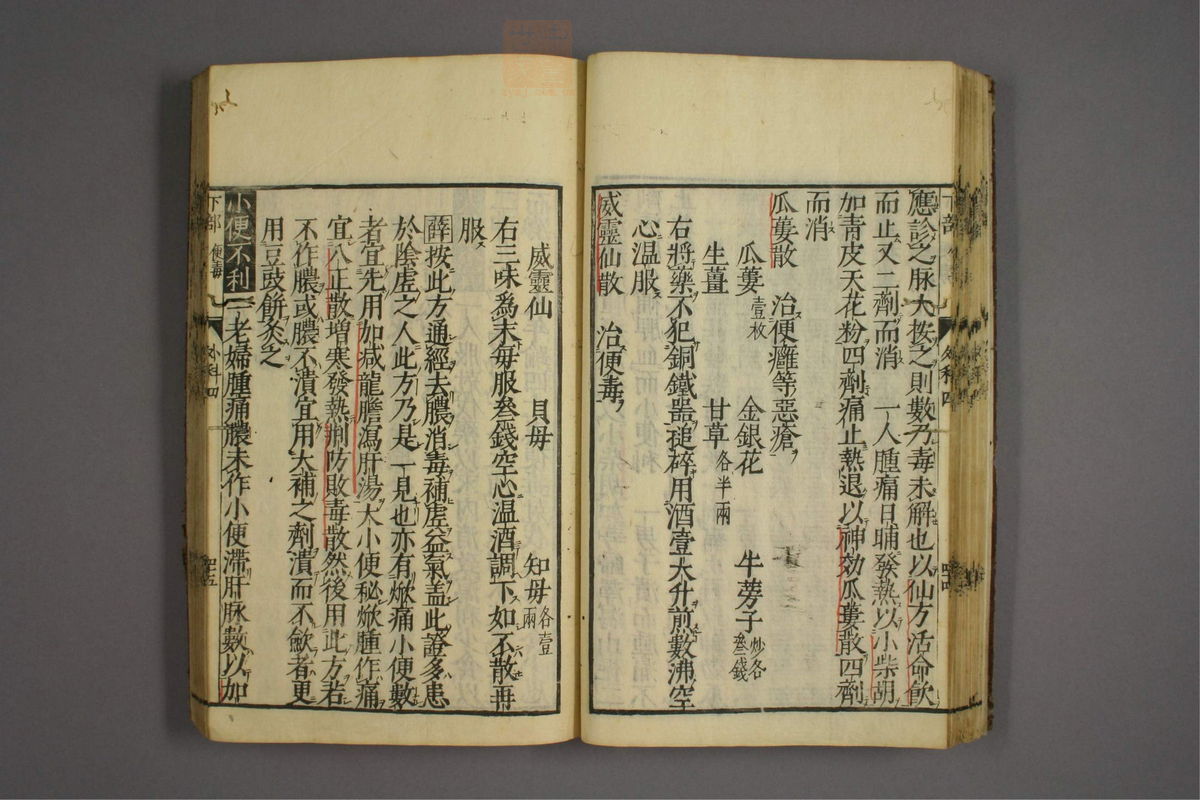 應診之脉大按之則數乃毒未解也以仙方活命飲
而止又二劑而消　一人腫痛日晡發熱以小柴胡
加青皮天花粉四劑痛止熱退以神効瓜蔞散四劑
而消
瓜蔞散　治便癰等惡瘡
瓜蔞壹枚　金銀花　牛蒡子炒各叄錢
生薑　甘草各半兩
右將藥不犯銅鐵器搥碎用酒壹大升煎數沸空
心温服
威靈仙散　治便毒
下部　外科四
威靈仙　貝毋　知毋各壹兩
右三味爲末毋服叄錢空心温酒調下如不散再
服
薛按此方通經去膿消毒補虚益氣盖此證多患
於陰虚之人此方乃是一見也亦有焮痛小便數
者宜先用加减龍膽瀉肝湯大小便秘焮腫作痛
宜八正散增寒發熱荆防敗毒散然後用此方若
不作膿或膿不潰宜用大補之劑潰而不斂者更
用豆豉餅灸之
小便不利　一老婦腫痛膿未作小便滞肝脉數以加
下部　便毒　外科四　四五